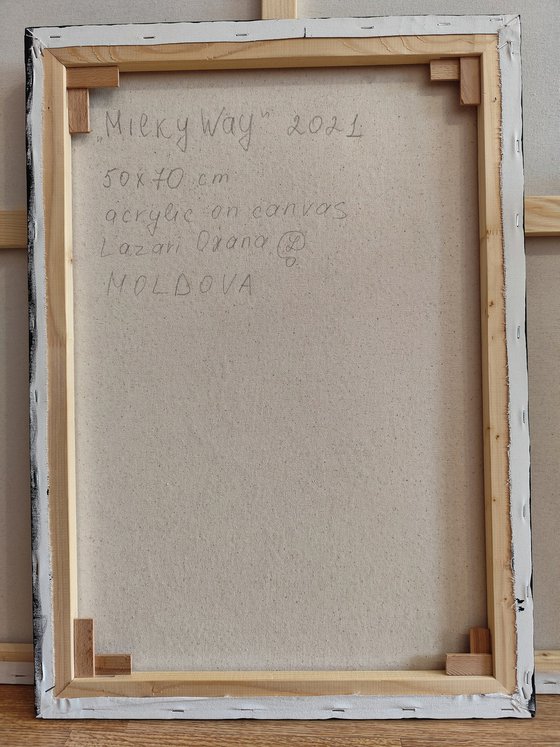 „Milky Way" 2021
50x70 cm
acrylic on canvas
Lazari Oxana
MOLDOVA